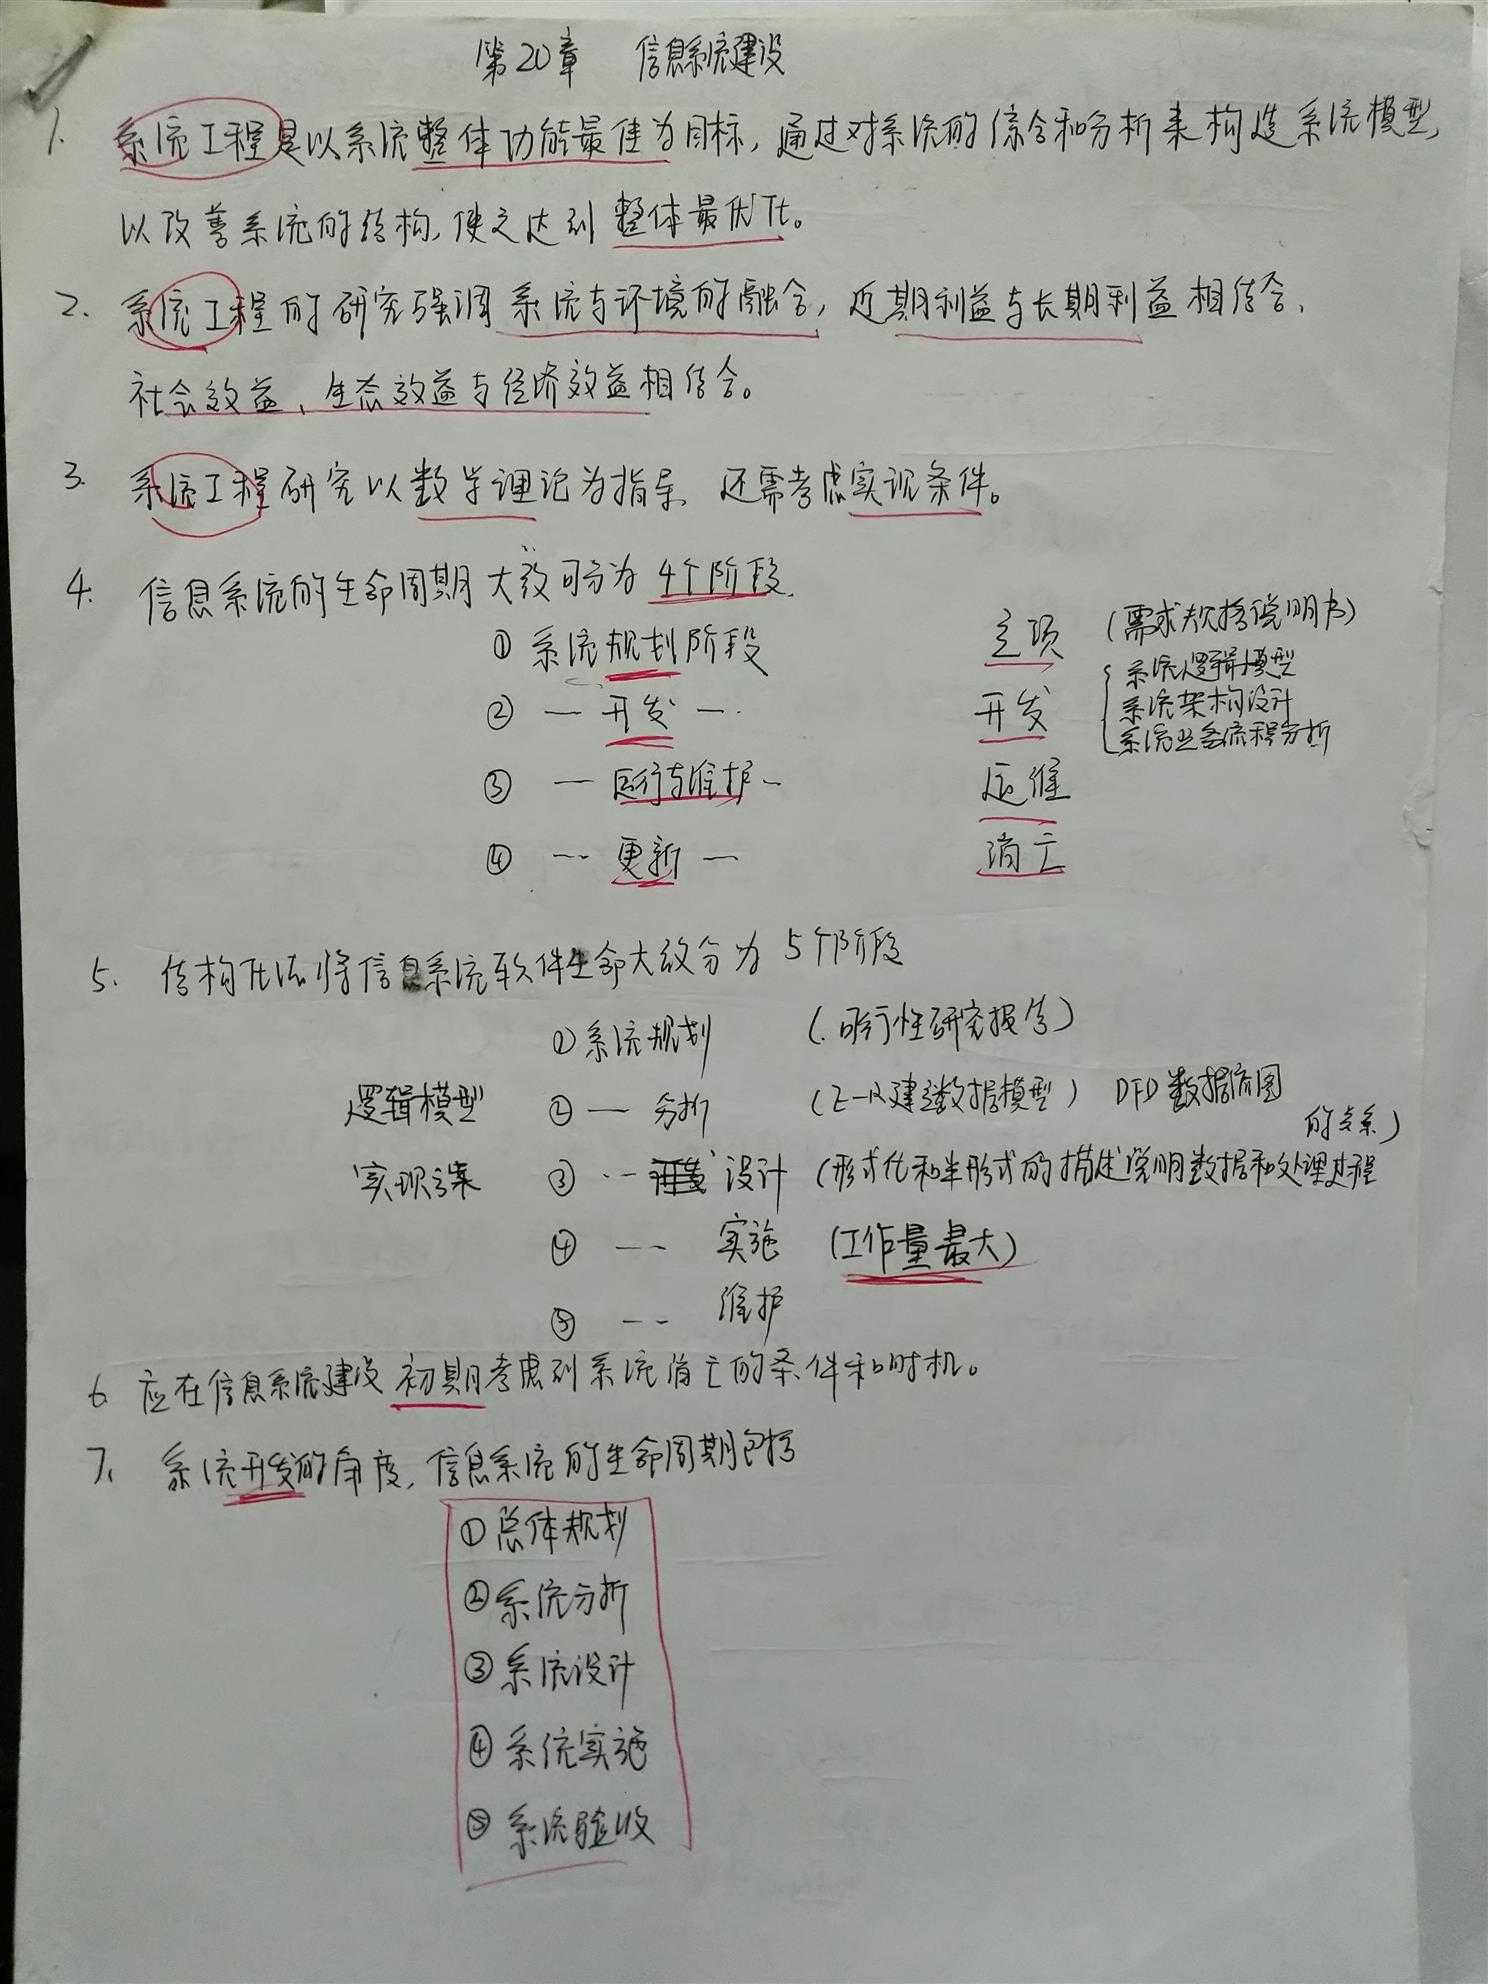 第20章 信息系统建设
1. 系统工程是以系统整体功能最佳为目标，通过对系统的综合和分析来构造系统模型，
以改善系统的结构，使之达到整体最优化。
2. 系统工程的研究强调系统与环境的融合，近期利益与长期利益相结合，
社会效益、生态效益与经济效益相结合。
3. 系统工程研究以数学理论为指导、还需考虑实现条件。
4. 信息系统的生命周期大致可分为4个阶段.
① 系统规划阶段 立项 (需求规格说明书)
系统逻辑模型
② — 开发 — 开发 系统架构设计
系统业务流程分析
③ — 运行与维护 — 运维
④ -- 更新 — 消亡
5. 结构化法将信息系统软件生命大致分为5个阶段
① 系统规划 (可行性研究报告)
逻辑模型 ② — 分析 (E-R建立数据模型) DFD数据流图
的关系)
实现方案 ③ -- 设计 (形式化和半形式的描述说明数据和处理过程
④ -- 实施 (工作量最大)
⑤ -- 维护
6. 应在信息系统建设初期考虑到系统消亡的条件和时机。
7. 系统开发的角度，信息系统的生命周期包括
① 总体规划
② 系统分析
③ 系统设计
④ 系统实施
⑤ 系统验收